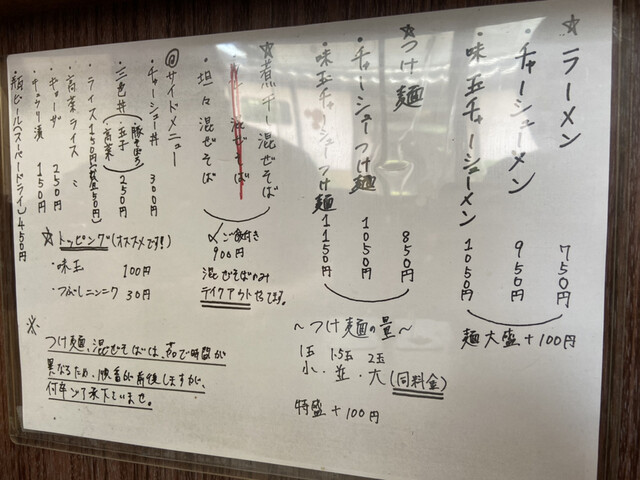 ☆ラーメン 750円
・チャーシューメン 950円
・味玉チャーシューメン 1050円
麺大盛+100円
☆つけ麺 850円
・チャーシューつけ麺 1050円
・味玉チャーシューつけ麺 1150円
〜つけ麺の量〜
1玉 1.5玉 2玉
小・並・大(同料金)
特盛+100円
☆煮干し混ぜそば
混ぜそば
・坦々混ぜそば
ご飯付き
900円
混ぜそばのみ
テイクアウトやってます。
@サイドメニュー
・チャーシュー丼 300円
・三色丼(豚そぼろ 玉子 高菜) 250円
・ライス150円
・高菜ライス 〃
・ギョーザ 250円
・キュウリ漬 150円
・瓶ビール(スーパードライ)450円
☆トッピング(オススメです!)
・味玉 100円
・つぶしニンニク 30円
※
つけ麺、混ぜそばは、茹で時間が
異なるため、順番が前後しますが、
何卒ご了承下さいませ。